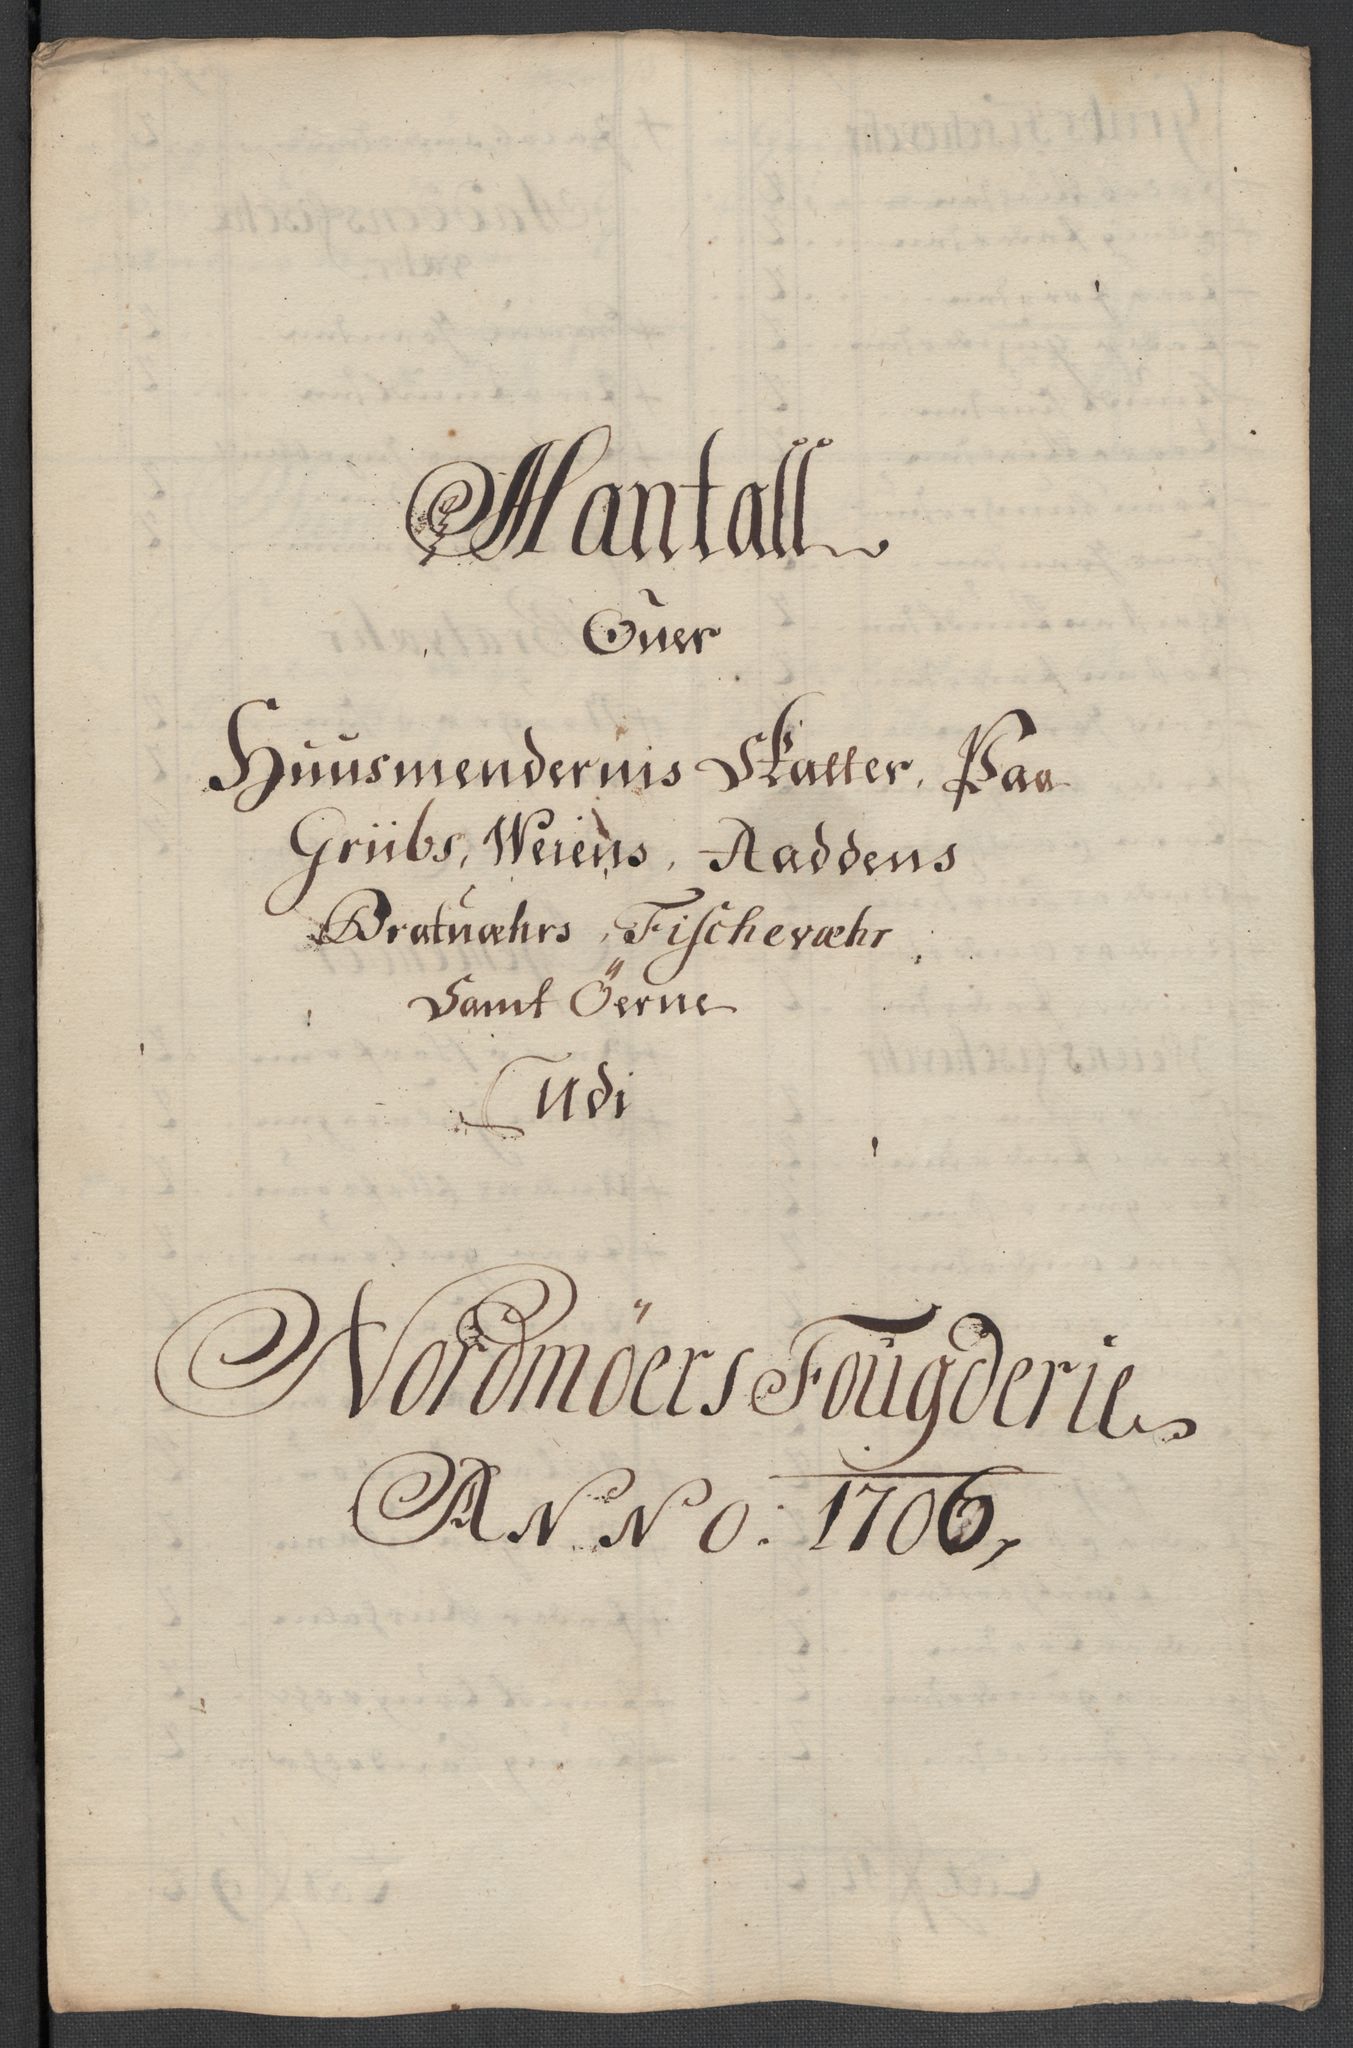 Mantall
Ofuer
Huusmendernis Skatter, Paa
Griibs, Weiens, Raddens
Bratuæhrs, Fischevæhr
Samt Öerne
Udi
Nordmöers Fougderie
ANNO: 1706,